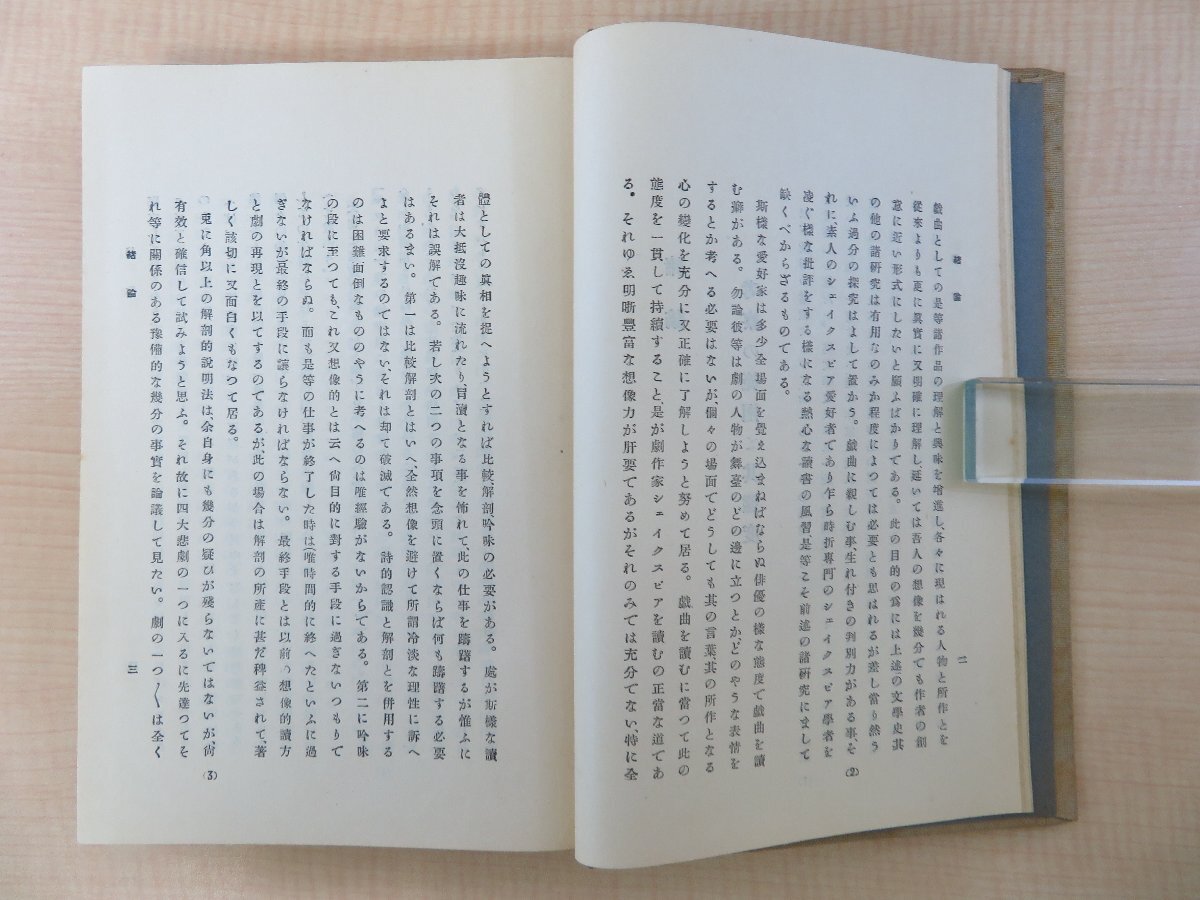 緒論
二
戯曲としての是等諸作品の理解と興味を増進し、各々に現はれる人物と所作とを
從來よりも更に眞實に又明確に理解し、延いては吾人の想像を幾分でも作者の創
意に近い形式にしたいと願ふばかりである。此の目的の爲には上述の文學史其
の他の諸研究は有用なのみか程度によつては必要とも思はれるが差し當り然う
いふ過分の探究はよして置かう。戯曲に親しむ事、生れ付きの判別力がある事、そ
れに素人のシェイクスピア愛好者であり乍ら時折專門のシェイクスピア學者を
凌ぐ様な批評をする様になる熱心な讀書の風習、是等こそ前述の諸研究にまして
缺くべからざるものである。
斯様な愛好家は多少全場面を覺え込まねばならぬ俳優の様な態度で戯曲を讀
む癖がある。勿論彼等は劇の人物が舞臺のどの邊に立つとか、どのやうな表情を
するとか考へる必要はないが、個々の場面でどうしても其の言葉、其の所作となる
心の變化を充分に又正確に了解しようと努めて居る。戯曲を讀むに當つて此の
態度を一貫して持續すること、是が劇作家シェイクスピアを讀むの正當な道であ
る。それゆゑ明晰豐富な想像力が肝要であるがそれのみでは充分でない、特に全
(2)
體としての眞相を捉へようとすれば比較、解剖、吟味の必要がある。處が斯様な讀
者は大抵沒趣味に流れたり、冒瀆となる事を怖れて、此の仕事を躊躇するが惟ふに
それは誤解である。若し次の二つの事項を念頭に置くならば何も躊躇する必要
はあるまい。第一は比較解剖とはいへ、全然想像を避けて所謂冷淡な理性に訴へ
よと要求するのではない、それは却て破滅である。詩的認識と解剖とを併用する
のは困難面倒なもののやうに考へるのは唯經驗がないからである。第二に吟味
の段に至つても、これ又想像的とは云へ尙目的に對する手段に過ぎないつもりで
なければならぬ。而も是等の仕事が終了した時は(唯時間的に終へたといふに過
ぎないが)最終の手段に讓らなければならない。最終手段とは以前の想像的讀方
と劇の再現とを以てするのであるが、此の場合は解剖の所產に甚だ裨益されて、著
しく該切に又面白くもなつて居る。
兎に角以上の解剖的說明法は、余自身にも幾分の疑ひが殘らないではないが、尙
有效と確信して試みようと思ふ。それ故に四大悲劇の一つに入るに先達つてそ
れ等に關係のある豫備的な幾分の事實を論議して見たい。劇の一つ〱は全く
(3)
緒論
三